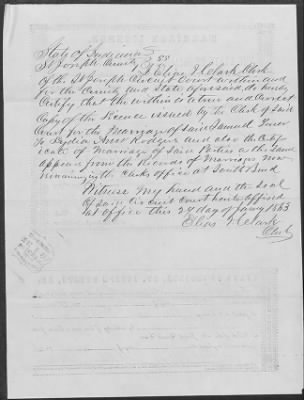 State of Indiana }
St Joseph County } SS
I Elias V Clark Clerk
of the St Joseph Circuit Court within and
for the County and State aforesaid, do hereby
Certify that the within is a true and Correct
Copy of the License issued by the Clerk of Said
Court for the Marriage of Said Samuel
to Lydia Ann Rodgers and also the Certifi
cate of Marriage of Said Parties as the same
appears from the Records of Marriages now
remaining in the Clerks office at South Bend
Witness my hand and the Seal
of Said Circuit Court hereto affixed
at Office this 24 day of Jany 1863
Elias V Clark
Clerk